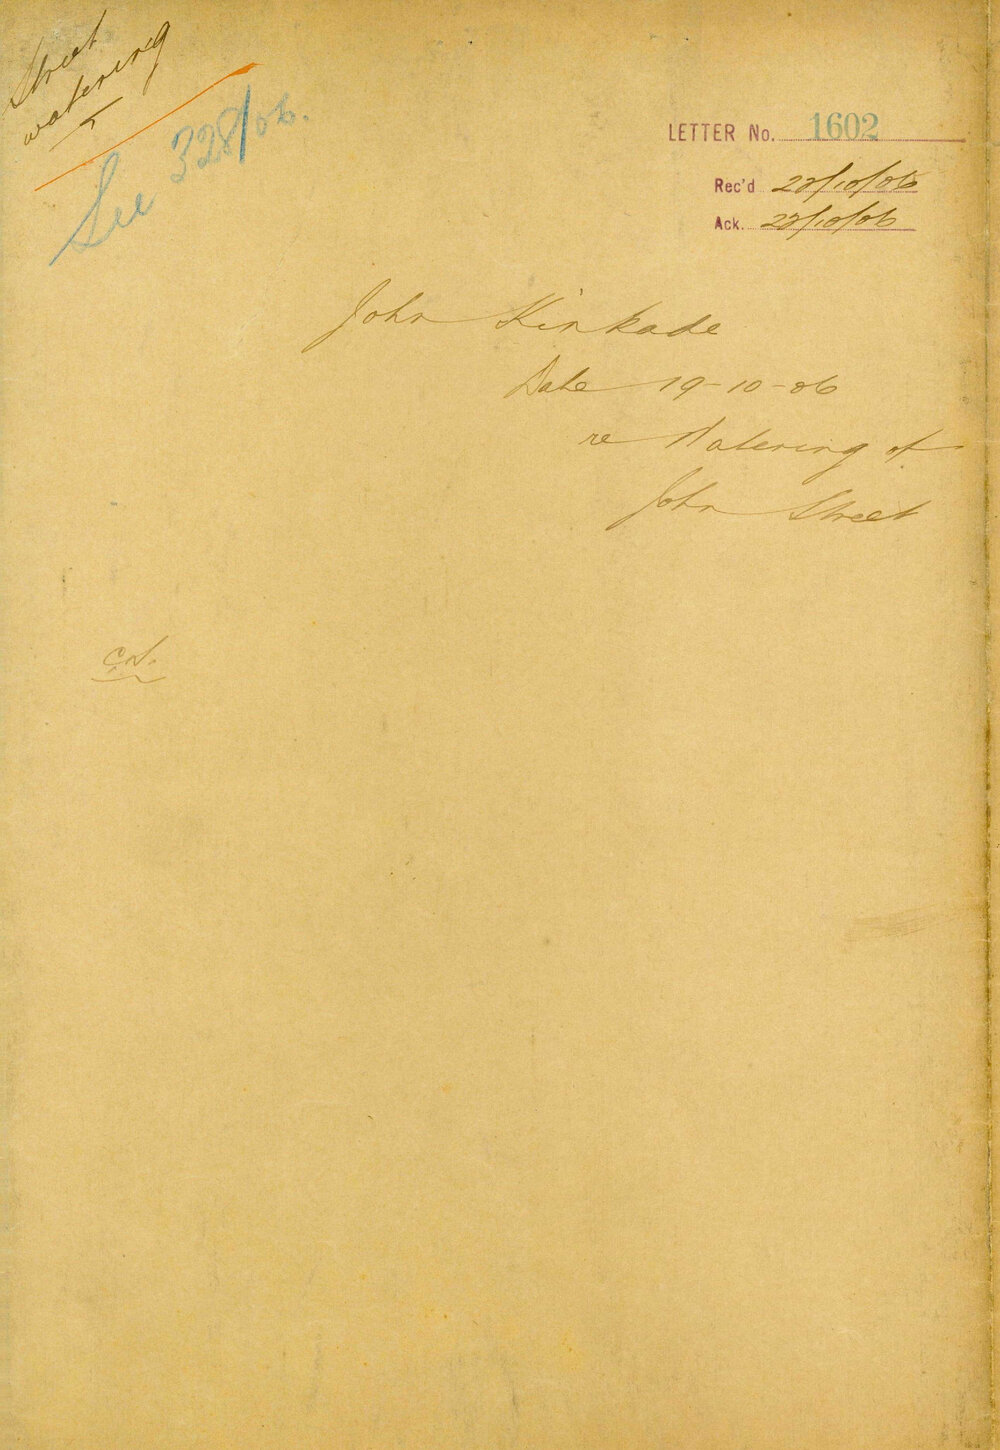 Street
watering
See 328/06.
LETTER No. 1602
Rec'd 22/10/06
Ack. 22/10/06
John Kinkade
Date 19-10-06
re Watering of
John Street